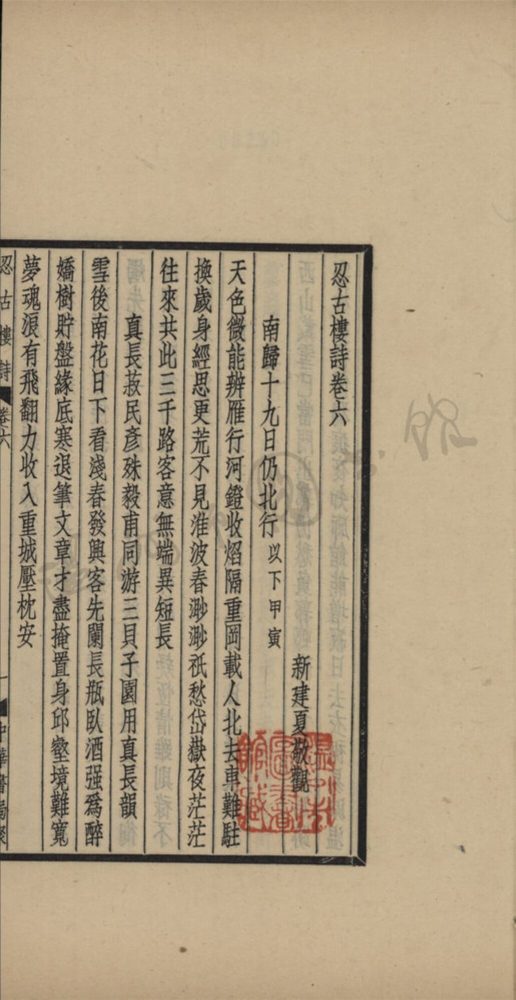 忍古樓詩卷六
新建夏敬觀
南歸十九日仍北行 以下甲寅
天色微能辨雁行河鐙收焰隔重岡載人北去車難駐
換歲身經思更荒不見淮波春渺渺祇愁岱嶽夜茫茫
往來共此三千路客意無端異短長
真長菽民彥殊毅甫同游三貝子園用真長韻
雪後南花日下看淺春發興客先闌長瓶臥酒强為醉
嬌樹貯盤緣底寒退筆文章才盡掩置身邱壑境難寬
夢魂浪有飛翻力收入重城壓枕安
忍古樓詩 卷六 一 中華書局聚